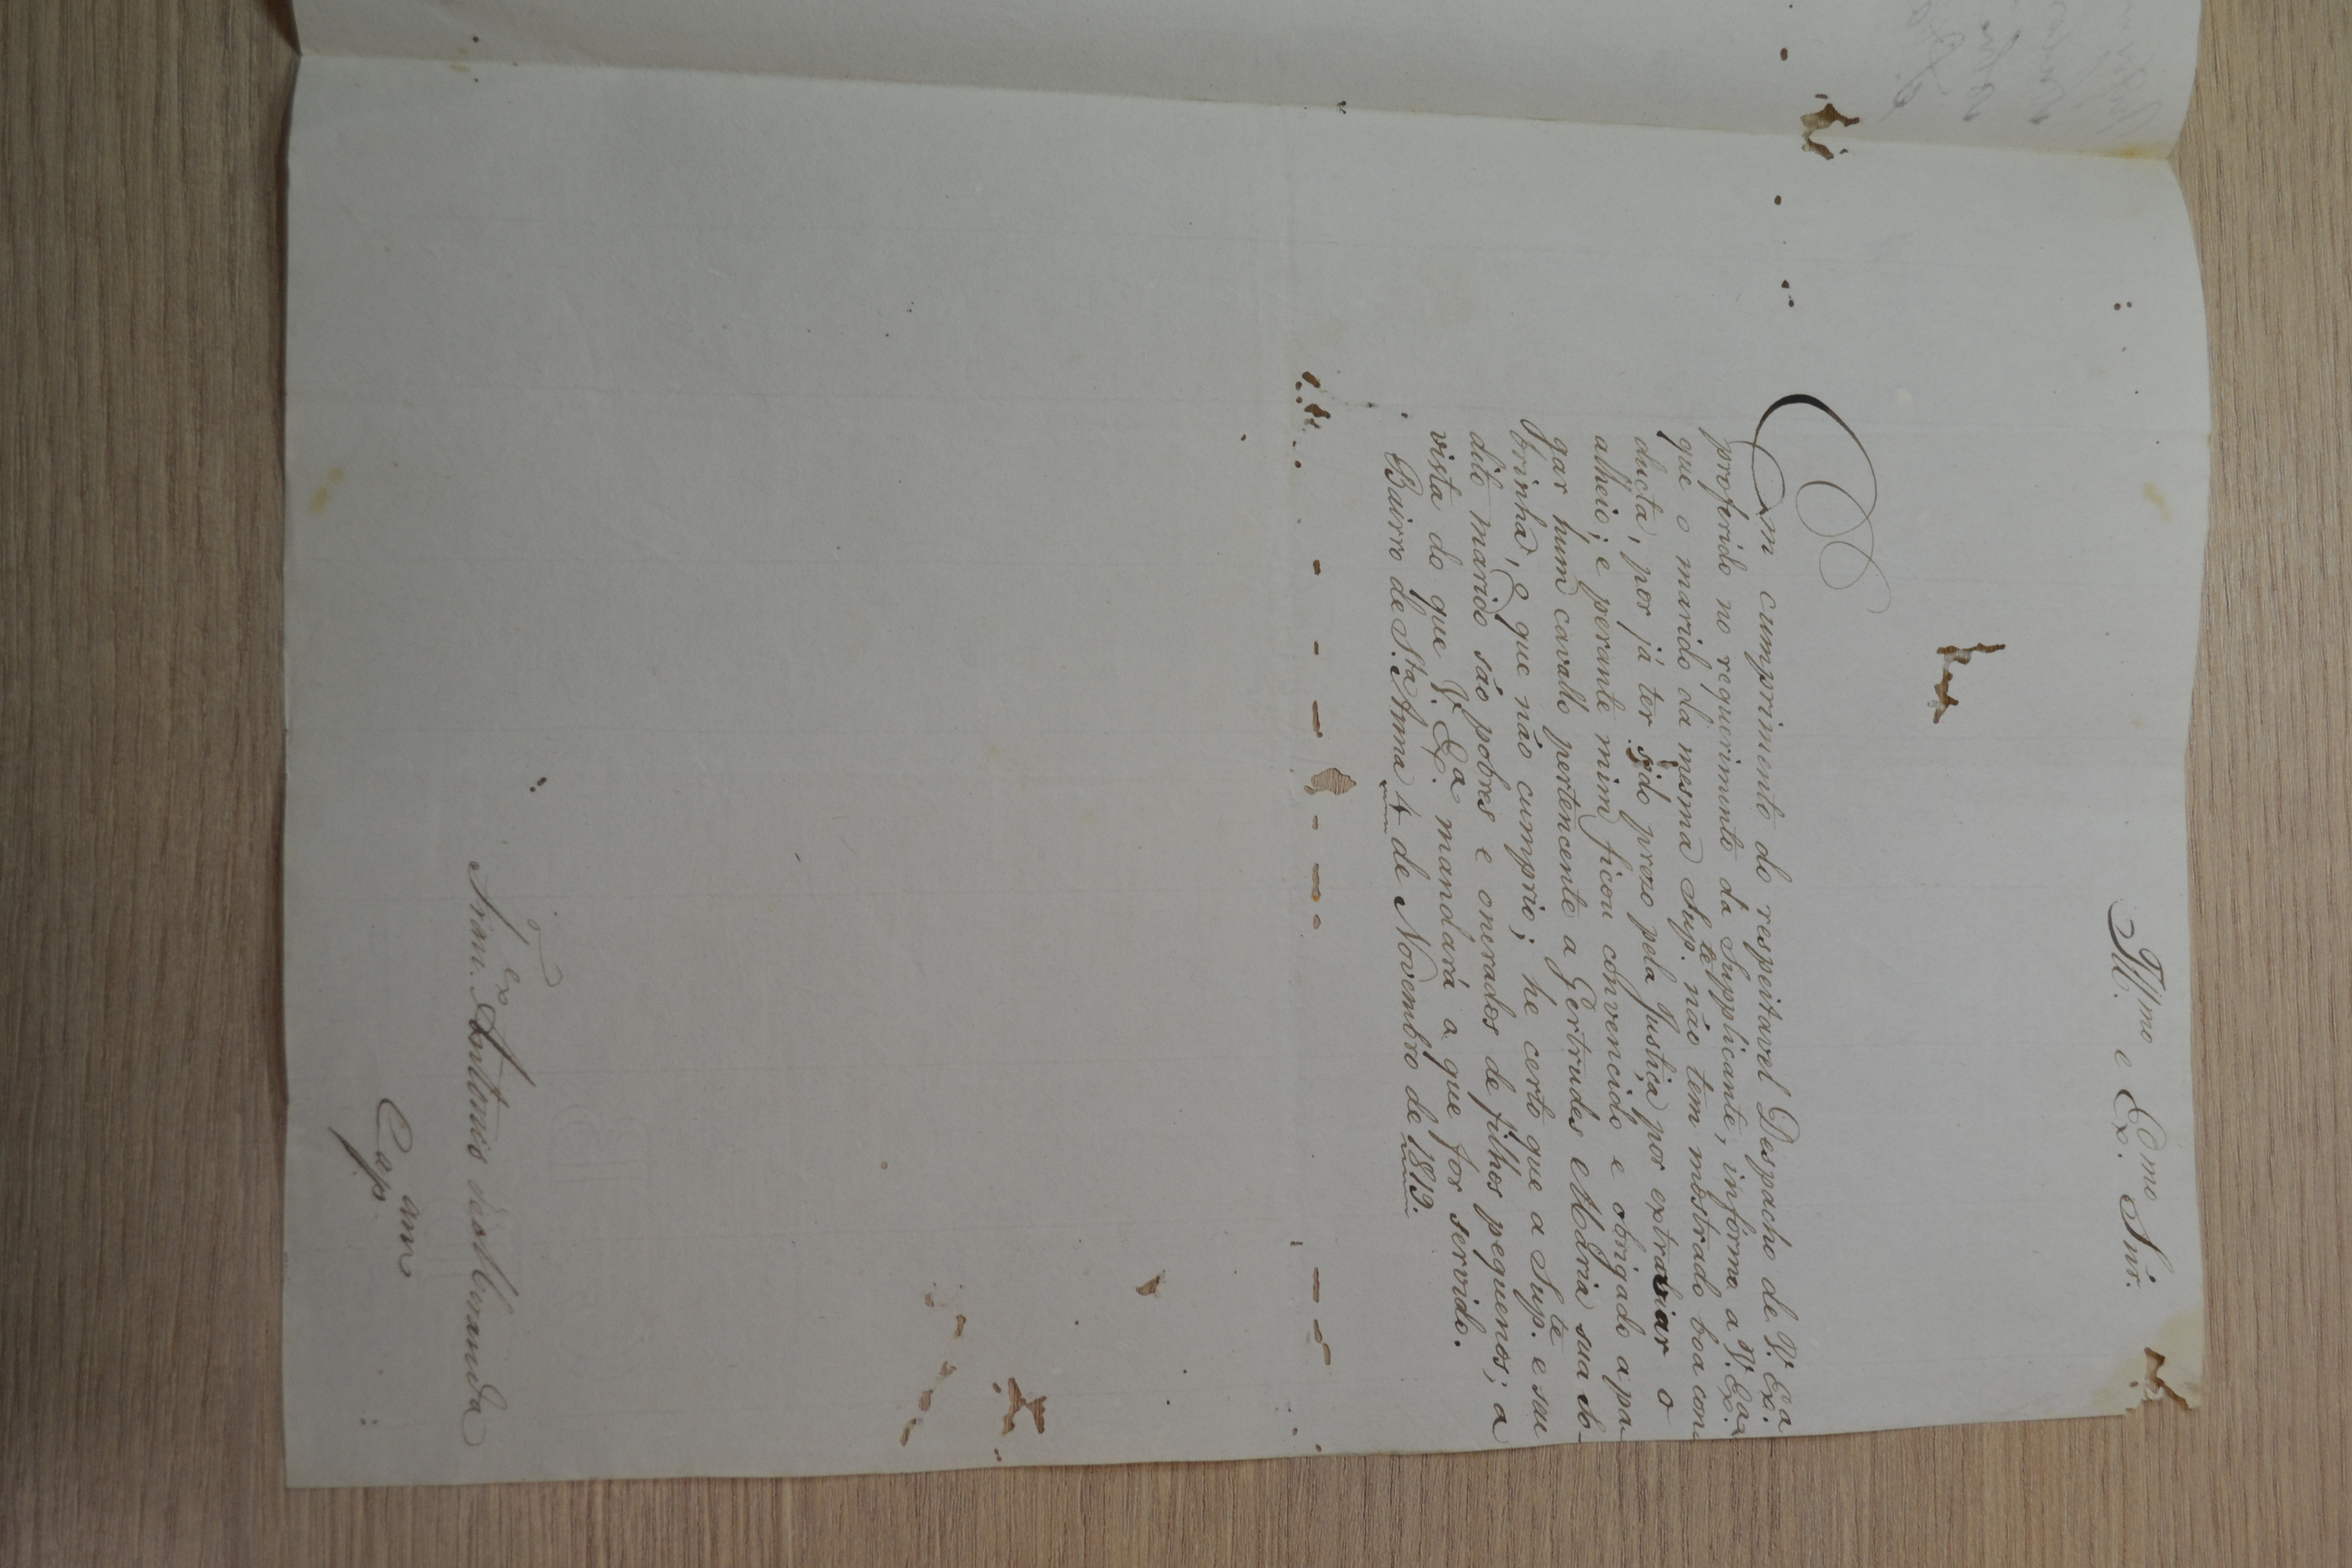 Ill.mo e Ex.mo Snr.
Em cumprimento do respeitavel Despacho de V. Ex.a
proferido no requerimento da Supplicante, informo a V. Ex.a
que o marido da mesma Sup.te não tem mostrado boa con
ducta, por já ter sido prezo pela Justiça por extraviar o
alheio; e perante mim ficou convencido e obrigado a pa-
gar hum cavallo pertencente a Gertrudes Maria sua So-
brinha, e que não cumprio; he certo que a Sup.te e seu
dito marido são pobres e onerados de filhos pequenos; a
vista do que V. Ex.a mandará o que for servido.
Bairro de S.ta Anna 4 de Novembro de 1819.
Antonio de Miranda
Cap.am